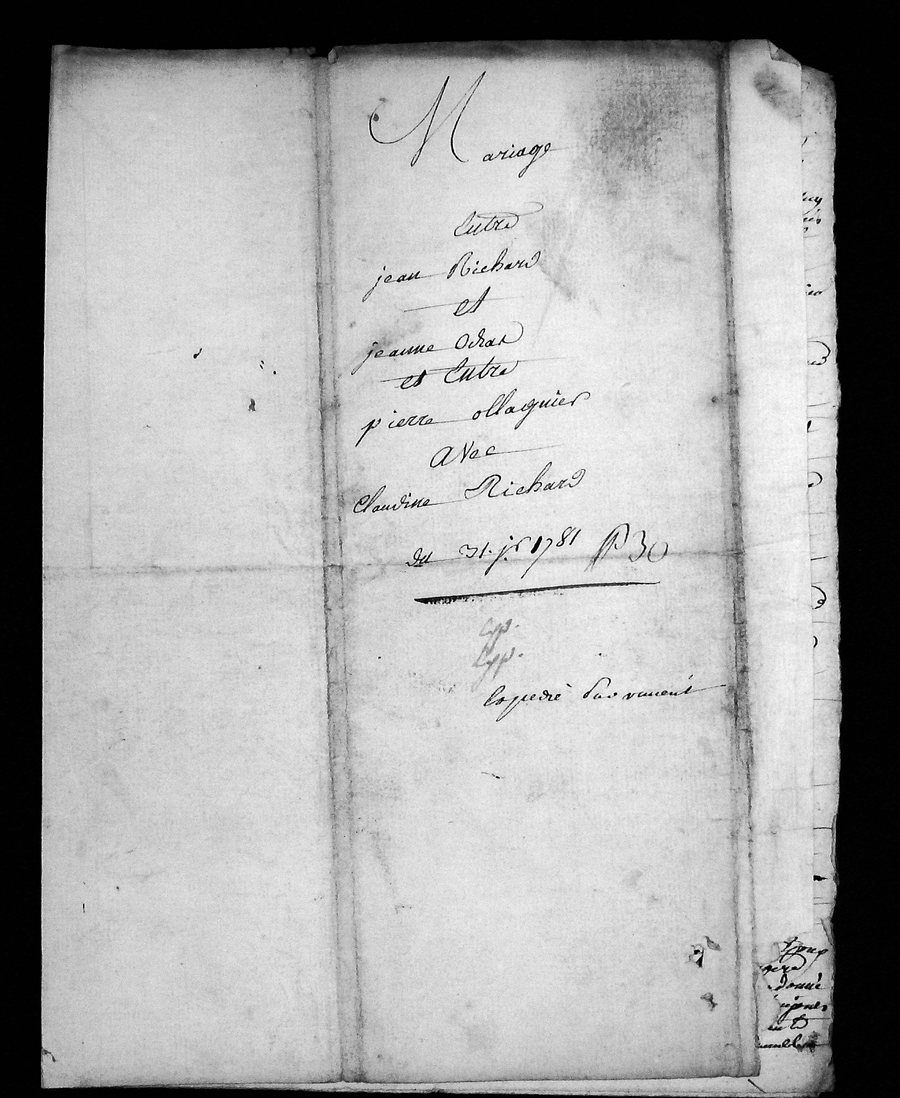 Mariage
Entre
jean Richard
et
jeanne Odras
et Entre
pierre ollagnier
avec
Claudine Richard
du 31. jr 1781
Exp.
Exp.
Expedié
donné